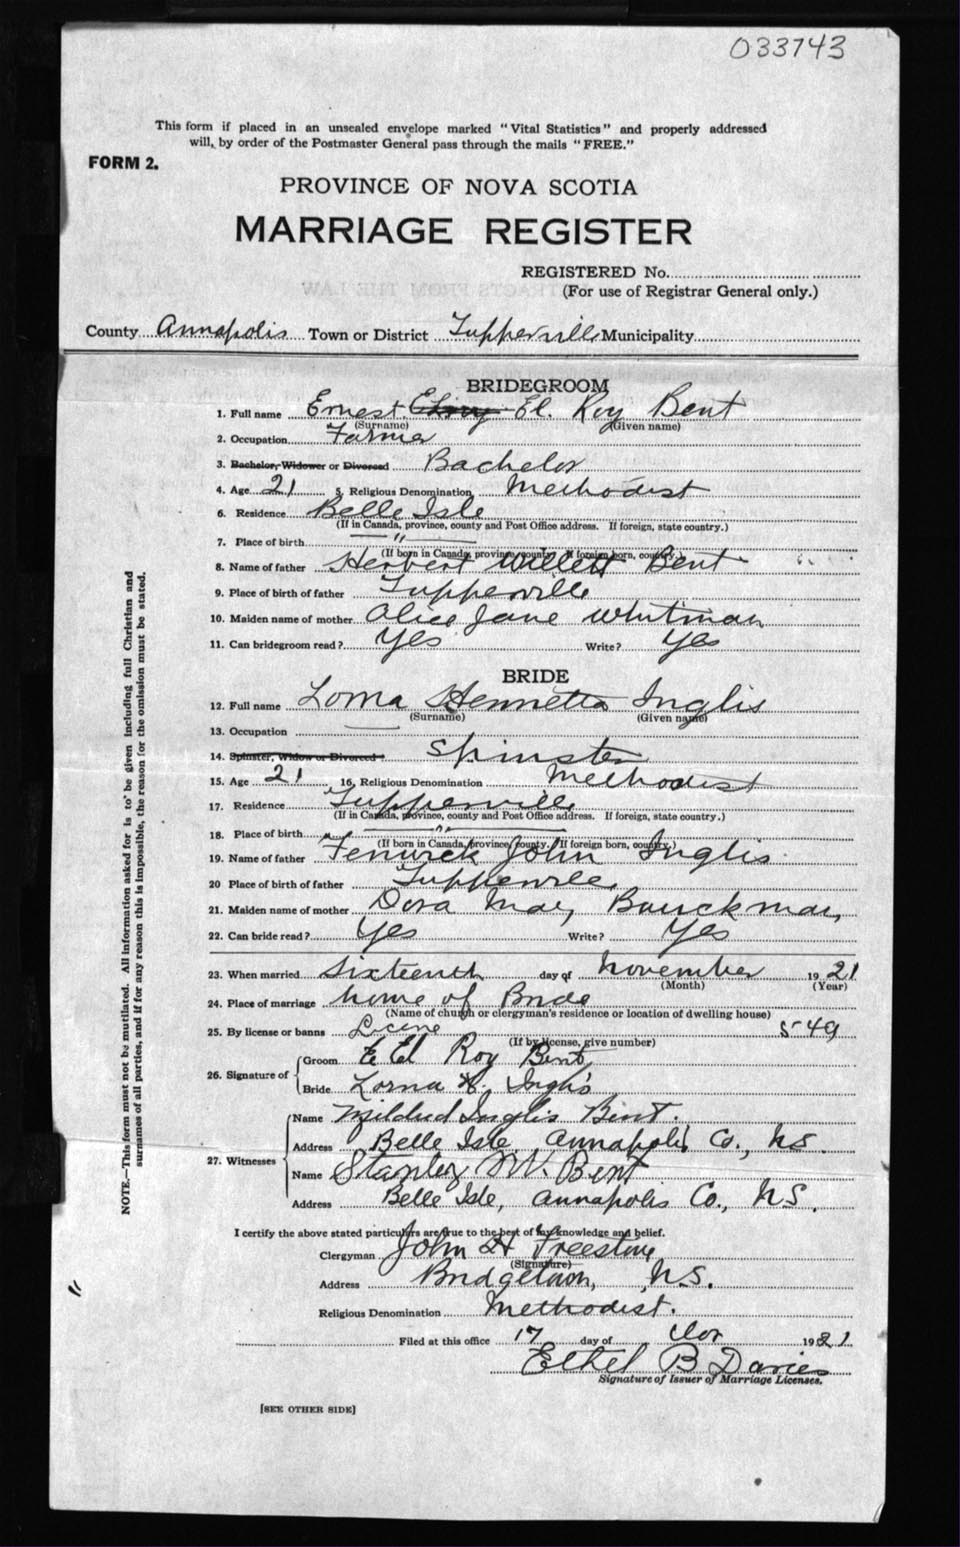 033743
This form if placed in an unsealed envelope marked "Vital Statistics" and properly addressed
will, by order of the Postmaster General pass through the mails "FREE."
FORM 2.
PROVINCE OF NOVA SCOTIA
MARRIAGE REGISTER
REGISTERED No.
(For use of Registrar General only.)
County Annapolis Town or District Tupperville Municipality
BRIDEGROOM
1. Full name Ernest El. Roy Bent
(Surname) (Given name)
2. Occupation Farmer
3. Bachelor, Widower or Divorced Bachelor
4. Age 21 5. Religious Denomination Methodist
6. Residence Belle Isle
(If in Canada, province, county and Post Office address. If foreign, state country.)
7. Place of birth "
(If born in Canada, province, county. If foreign born, country.)
8. Name of father Herbert Willett Bent
9. Place of birth of father Tupperville
10. Maiden name of mother Alice Jane Whitman
11. Can bridegroom read? Yes Write? Yes
BRIDE
12. Full name Lorna Henrietta Inglis
(Surname) (Given name)
13. Occupation
14. Spinster, Widow or Divorced Spinster
15. Age 21 16. Religious Denomination Methodist
17. Residence Tupperville
(If in Canada, province, county and Post Office address. If foreign, state country.)
18. Place of birth "
(If born in Canada, province, county. If foreign born, country.)
19. Name of father Fenwick John Inglis
20 Place of birth of father Tupperville
21. Maiden name of mother Dora May
22. Can bride read? Yes Write? Yes
23. When married Sixteenth day of November 1921
(Month) (Year)
24. Place of marriage home of Bride
(Name of church or clergyman's residence or location of dwelling house)
25. By license or banns Licene 549
(If by license, give number)
26. Signature of
Groom E El Roy Bent
Bride Lorna H. Inglis
27. Witnesses
Name Mildred Inglis Bent.
Address Belle Isle, Annapolis Co., N.S.
Name Stanley W. Bent
Address Belle Isle, Annapolis Co., N.S.
I certify the above stated particulars are true to the best of my knowledge and belief.
Clergyman John H Freestone
(Signature)
Address Bridgetown, N.S.
Religious Denomination Methodist.
Filed at this office 17 day of Nov 1921.
Ethel B Davies
Signature of Issuer of Marriage Licenses.
[SEE OTHER SIDE]
NOTE.—This form must not be mutilated. All information asked for is to be given including full Christian and
surnames of all parties, and if for any reason this is impossible, the reason for the omission must be stated.